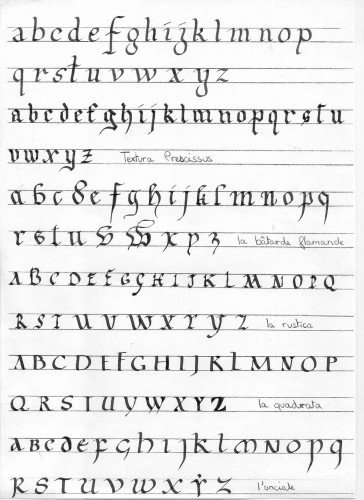 abcdefghijklmnop
qrstuvwxyz
abcdefghijklmnopqrstu
vwxyz Textura Prescissus
abcdefghijklmnopq
rstuvwxyz la bâtarde flamande
ABCDEFGGHIJKLMNOPQ
RSTUVWXYYZ la rustica
ABCDEFGHIJKLMNOP
QRSTUYWXYZ la quadrata
ABCDEFGHIJKLMNOPQ
RSTUVWXYZ l'onciale